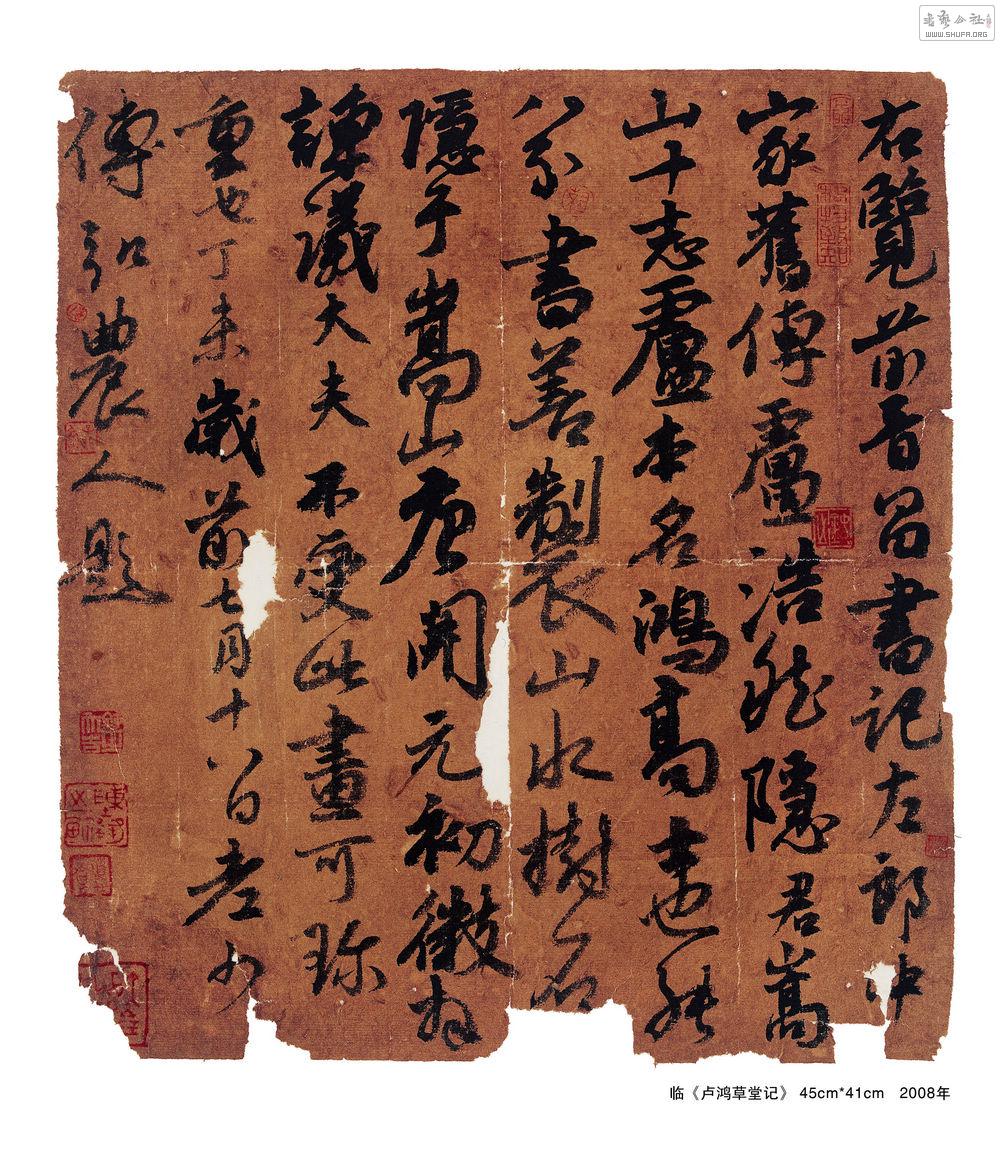 右覽前晉昌書記左郎中
家舊傳盧浩然隱君嵩
山十志盧本名鴻高士也能
八分書善製山水樹石
隱于嵩山唐開元初徵拜
諫議大夫不受此畫可珍
重也丁未歲前七月十八日老少
傅弘農人題
临《卢鸿草堂记》 45cm*41cm 2008年
书艺公社
WWW.SHUFA.ORG